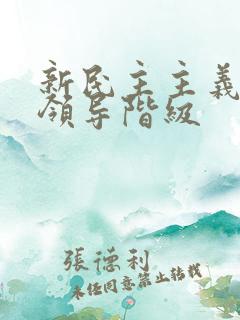 新民主主義
領导階級
張德利
未经同意禁止转载